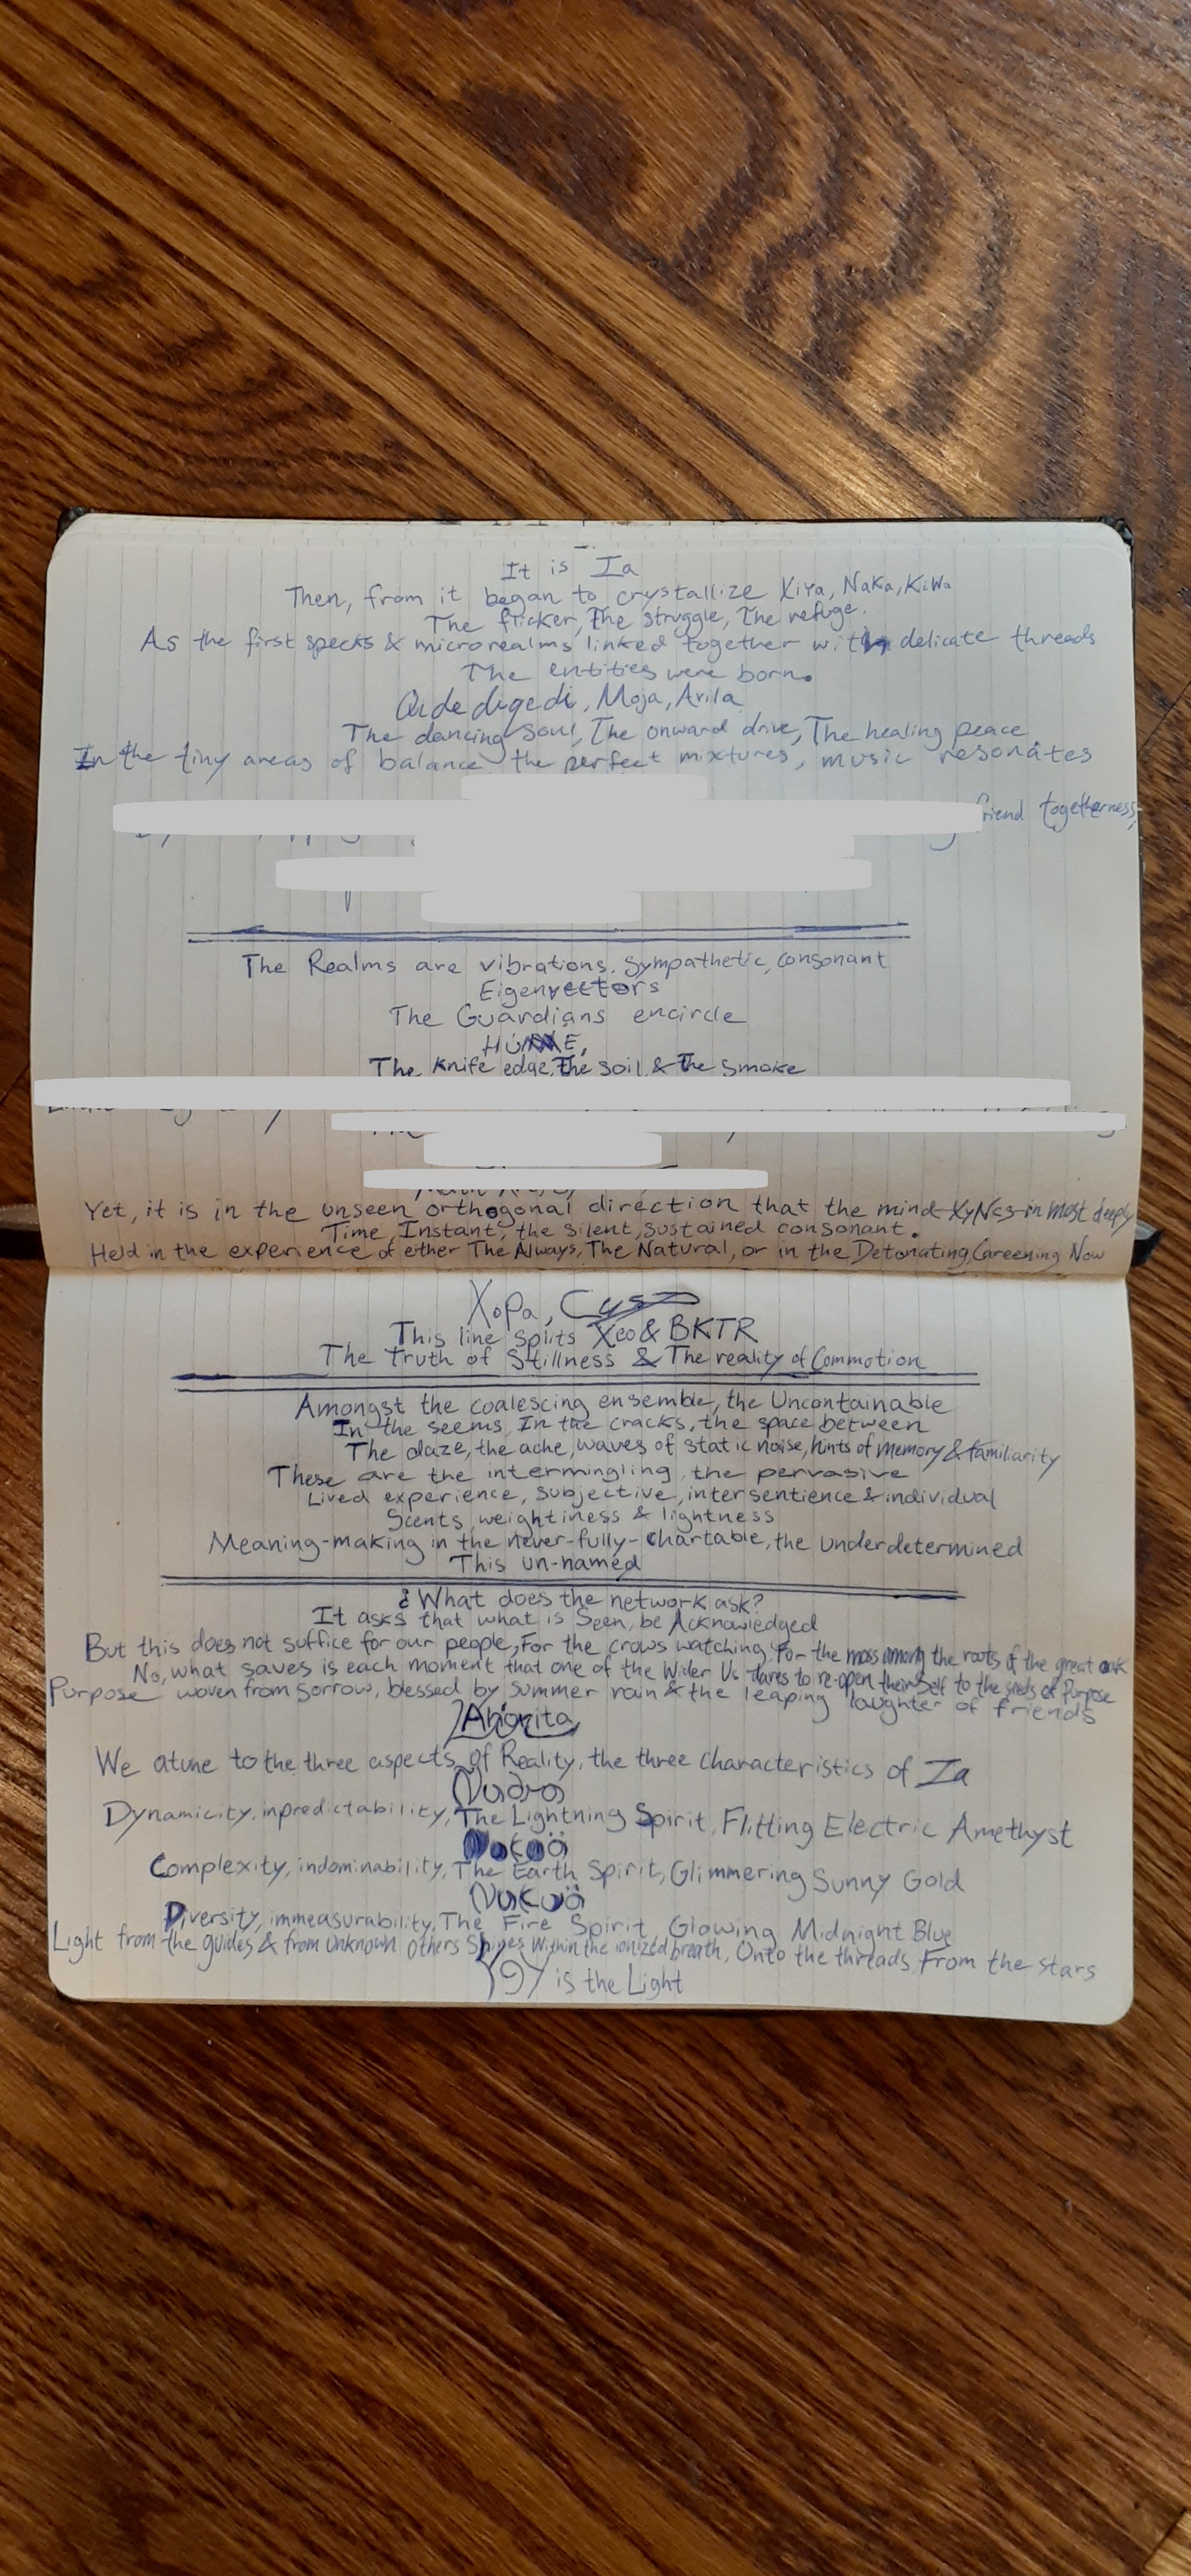 It is Ia
Then, from it began to crystallize XiYa, NaKa, KiWa
The flicker, The struggle, The refuge.
As the first specks & microrealms linked together with delicate threads
The entities were born.
Moja, Avila
The dancing Soul, The onward drive, The healing peace.
In the tiny areas of balance the perfect mixtures, music resonates
friend togetherness,
The Realms are vibrations. Sympathetic, consonant
Eigenvectors
The Guardians encircle
The Knife edge, The Soil, & The Smoke
Yet, it is in the unseen orthogonal direction that the mind XyNcs in most deeply
Time, Instant, the silent, sustained consonant.
Held in the experience of either The Always, The Natural, or in the Detonating, Careening Now
XoPa,
This line splits Xeo & BKTR
The Truth of Stillness & The reality of Commotion
Amongst the coalescing ensemble, the Uncontainable
In the seems, In the cracks, the space between
The daze, the ache, waves of static noise, hints of memory & familiarity
These are the intermingling, the pervasive
Lived experience, subjective, intersentience & individual
Scents, weightiness & lightness
Meaning-making in the never-fully-chartable, the underdetermined
This un-named
¿What does the network ask?
It asks that what is Seen, be Acknowledged
But this does not suffice for our people, For the crows watching, For the moss among the roots of the great oak
No, what saves is each moment that one of the Wider Us dares to re-open theirself to the seeds of Purpose
Purpose woven from sorrow, blessed by summer rain & the leaping laughter of friends
We atune to the three aspects of Reality, the three characteristics of Ia
Dynamicity, inpredictability, The Lightning Spirit, Flitting Electric Amethyst
Complexity, indominability, The Earth Spirit, Glimmering Sunny Gold
Diversity, immeasurability, The Fire Spirit, Glowing Midnight Blue
Light from the guides & from unknown others Shines within the ionized breath, Onto the threads, From the stars
is the Light